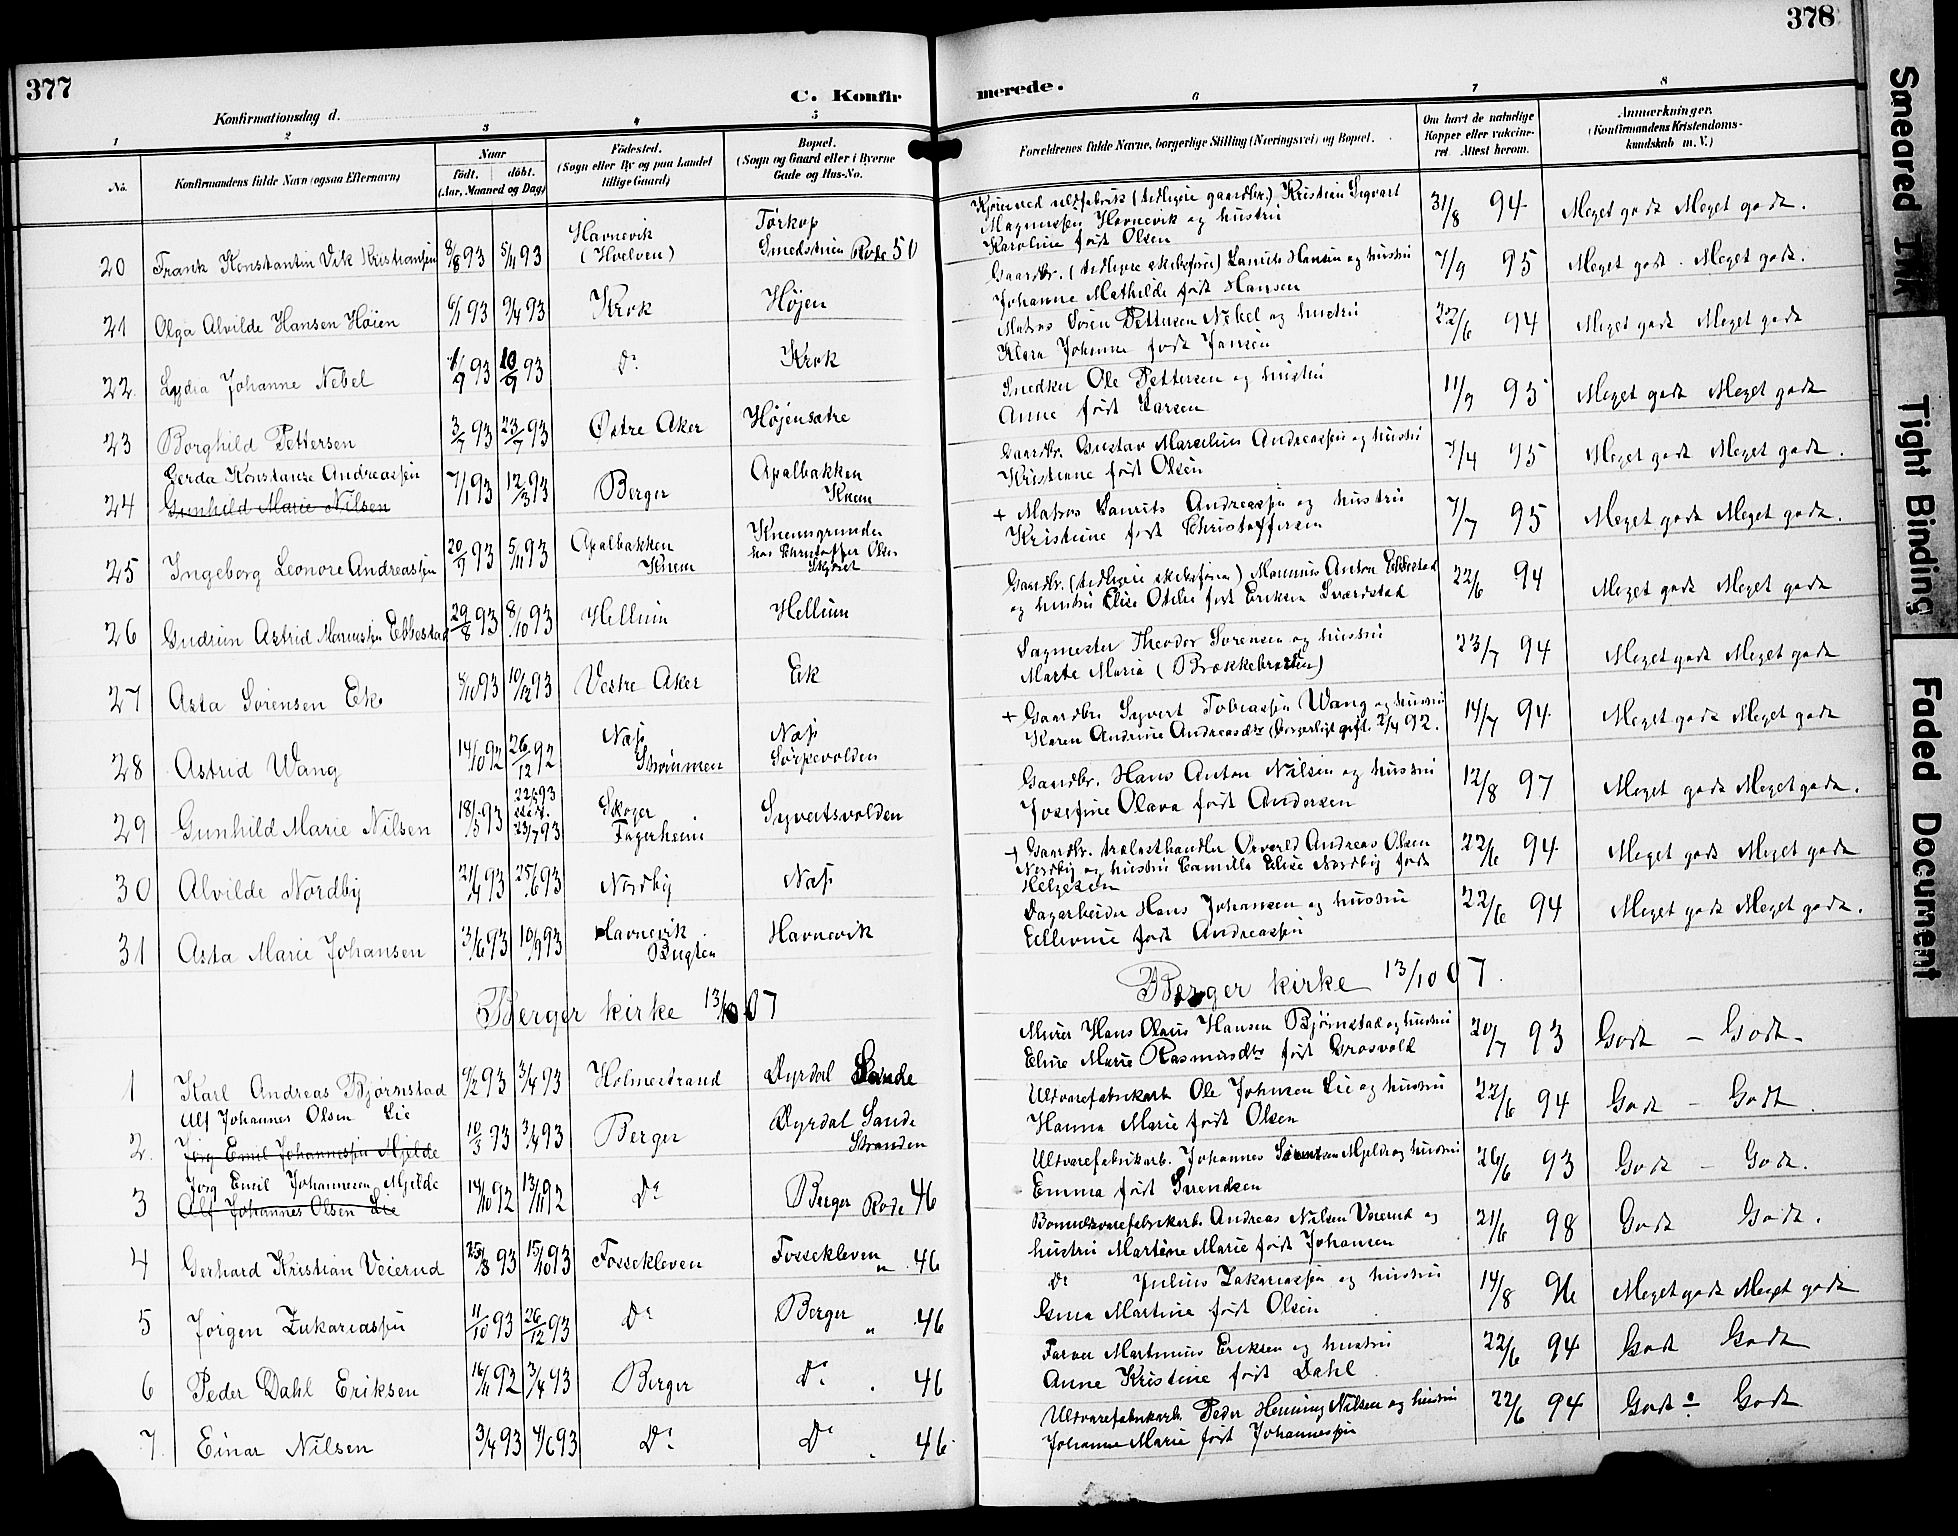 377
C. Konfir
Konfirmationsdag d.
1 2 3 4 5
No.
Konfirmandens fulde Navn (ogsaa Efternavn)
Naar
født. døbt.
(Aar, Maaned og Dag)
Fødested.
(Sogn eller By og paa Landet
tillige Gaard)
Bopæl.
(Sogn og Gaard eller i Byerne
Gade og Hus-No.
Havnevik Torkop
20 Frank Konstantin Vik Kristiansen 8/8 93 5/11 93 (Hvelven) Smedstuen Rode 50
21 Olga Alvilde Hansen Høien 6/1 93 9/4 93 Krok Højen
22 Lydia Johanne Nebel 1/9 93 10/9 93 Do Krok
23 Borghild Pettersen 3/7 93 23/7 93 Østre Aker Højensætre
Gerda Konstanse Andreassen
24 Gunhild Marie Nilsen 7/1 93 12/3 93 Berger Apalbakken
Knem
25 Ingeborg Leonore Andreassen 20/9 93 5/11 93 Apalbakken Knem
Knemsgrunden
hos Christoffer Olsen
26 Gudrun Astrid Ebbestad 29/8 93 8/10 93 Hellum Hellum
27 Asta Sørensen Ek 8/10 93 10/12 93 Vestre Aker Ek
28 Astrid Wang 14/10 92 26/12 92 Næs Strømmen Næs
Sørpevolden
29 Gunhild Marie Nilsen 18/5 93 23/7 93 Skoger Fagerheim Syvertsvolden
30 Alvilde Nordby 21/4 93 25/6 93 Nordby Næs
31 Asta Marie Johansen 3/6 93 10/9 93 Havnevik Bugten Havnevik
Berger kirke 13/10 07
1 Karl Andreas Bjørnstad 9/2 93 3/4 93 Holmestrand Dyrdal Sande
Ulf Johannes Olsen Lie
2. Jørg Emil Johannessen Mjelde 10/3 93 3/4 93 Berger Dyrdal Sande
Stranden
Jørg Emil Johannesen Mjelde
3 Alf Johannes Olsen Lie 14/10 92 13/11 92 Do Berger Rode 46
4 Gerhard Kristian Veierud 25/8 93 15/10 93 Fossekleven Fossekleven " 46
5 Jørgen Zakariassen 11/10 93 26/12 93 Do Berger " 46
6 Peder Dahl Eriksen 16/11 92 3/4 93 Berger Do 46
7. Einar Nilsen 3/4 93 4/6 93 Do Do 46
378
merede.
6 7 8
Forældrenes fulde Navne, borgerlige Stilling (Næringsvei) og Bopæl.
Om havt de naturlige
Kopper eller vaccine-
ret. Attest herom.
Anmærkninger.
(Konfirmandens Kristendoms-
kundskab m. V.)
Kjører ved uldfabrik (tidligere gaardbr.) Kristian Sigvart
Magnussen Havnevik og hustru 31/8 94 Meget godt Meget godt.
Karoline født Olsen
Gaardbr. (tidligere skibsfører) Laurits Hansen og hustru 7/9 95 Meget godt. Meget godt.
Johanne Mathilde født Hansen
Matros Søren Pettersen Nebel og hustru 22/6 94 Meget godt Meget godt
Klara Johanne født Jansen
Snedker Ole Pettersen og hustru 11/9 95 Meget godt Meget godt
Anne født Larsen
Gaardbr. Gustav Marselius Andreassen og hustru 7/4 95 Meget godt Meget godt.
Kristiane født Olsen
+ Matros Laurits Andreassen og hustru 7/7 95 Meget godt Meget godt.
Kristiane født Christoffersen
Gaardbr. (tidligere skibsfører) Anton Ebbestad 22/6 94 Meget godt Meget godt
og hustru Elise Otilie født Eriksen Sværdstad
Sagmester Theodor Sørensen og hustru 23/7 94 Meget godt Meget godt
Marte Maria (Brækkebråten)
+ Gaardbr. Syvert Tobiassen Wang og hustru 14/7 94 Meget godt Meget godt
Karen Andrine Andreasdtr (borgerligt gift 2/4 92.
Gaardbr. Hans Anton Nilsen og hustru 12/8 97 Meget godt Meget godt.
Josefine Olava født Andersen
+ Gaardbr. trælasthandler Andreas Olsen 22/6 94 Meget godt Meget godt
Nordby og hustru Camilla Elise Nordby født
Helgesen
Dagarbeider Hans Johansen og hustru 22/6 94 Meget godt Meget godt.
Ellevine født Andreassen
Berger kirke 13/10 07.
Murer Hans Olaus Hansen Bjørnstad og hustru 20/7 93 Godt – Godt.
Elise Marie Rasmusdtr født Grosvold
Uldvarefabrikarb. Ole Johnsen Lie og hustru 22/6 94 Godt – Godt.
Hanna Marie født Olsen
Uldvarefabrikarb. Johannes Mjelde og hustru 26/6 93 Godt – Godt.
Emma født Svendsen
Bomuldsvarefabrikarb. Andreas Nilsen Veierud og 21/6 98 Godt Godt.
hustru Martine Marie født Johansen
Do Julius Zakariassen og hustru 14/8 96 Meget godt Meget godt
Gina Martine født Olsen
Farver Martinius Eriksen og hustru 22/6 94 Godt Godt
Anne Kristine født Dahl
Uldvarefabrikarb. Peder Henning Nilsen og hustru 22/6 94 Godt Godt
Johanne Marie født Johannessen
Smeared Ink
Tight Binding
Faded Document